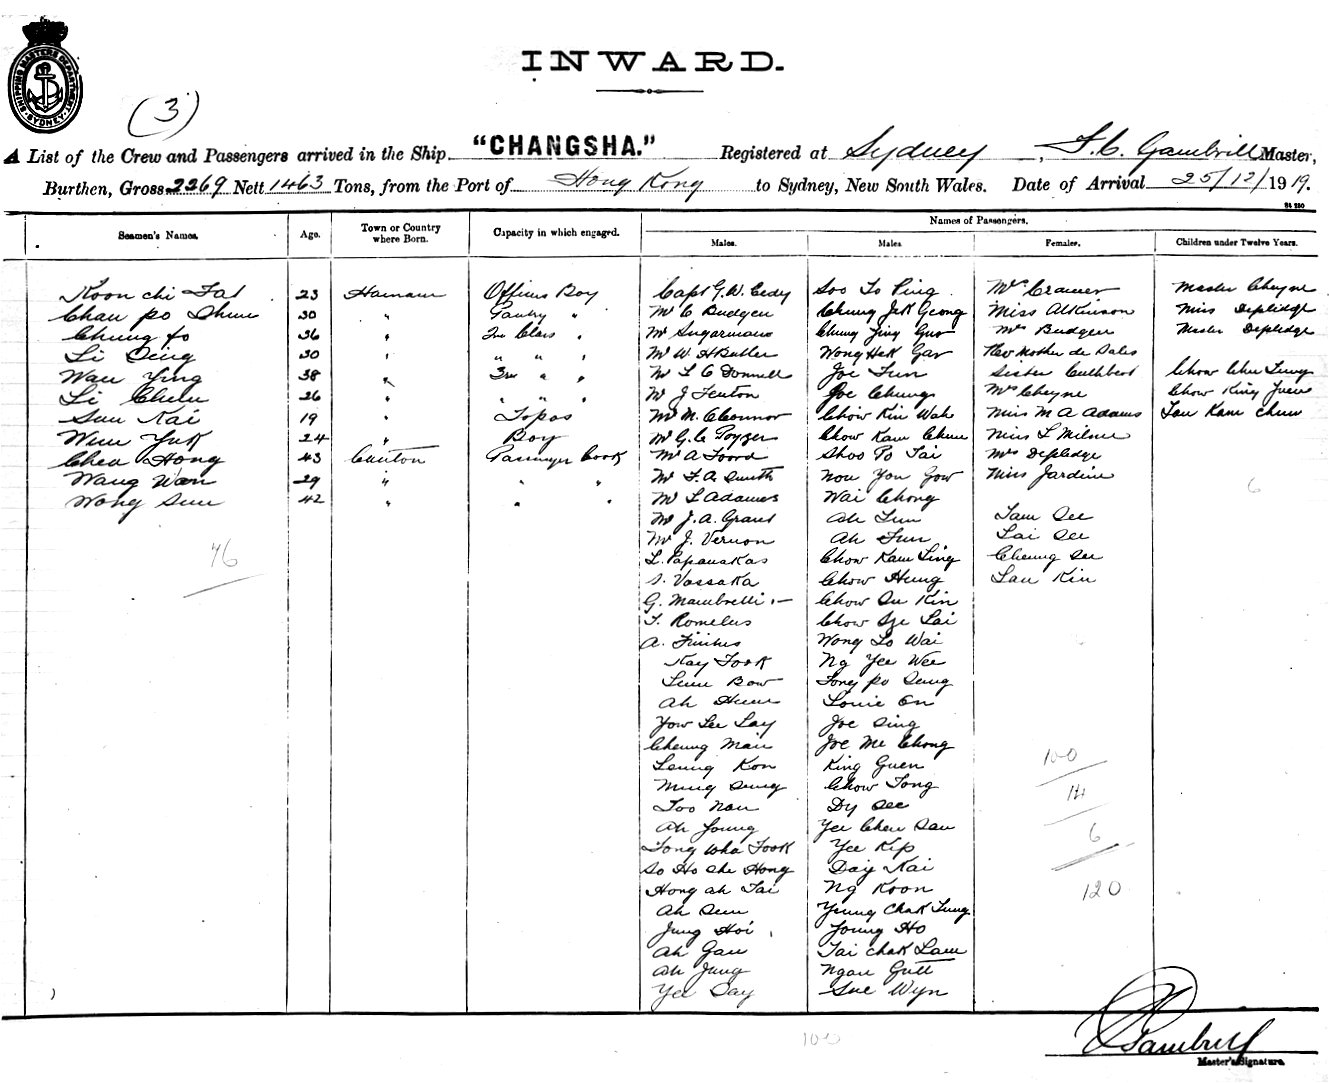 SHIPPING MASTER'S DEPARTMENT SYDNEY
INWARD.
(3)
A List of the Crew and Passengers arrived in the Ship "CHANGSHA." Registered at Sydney, Master,
Burthen, Gross 2269 Nett 1463 Tons, from the Port of Hong Kong to Sydney, New South Wales. Date of Arrival 25/12/1919.
Names of Passengers.
Seamen's Names. Age. Town or Country where Born. Capacity in which engaged. Males. Males. Females. Children under Twelve Years.
Koon Chi Fat 23 Hainam Officers Boy Capt G. W. Eedy Soo To Ping Mrs Cramer Master Cheyne
Chau po Shun 30 " Pantry " Mr C Budgen Cheung Jek Geong Miss Atkinson Miss Deplidge
Chung fo 36 " 2n Class " Mr Sugarmans Chung Jing Guo Mrs Budgen Master Deplidge
Li Ding 30 " " " " Mr W. H Butler Wong Hek Gar Rev Mother de Sales
Wan Ying 38 " 3rd " " Mr L C Donnell Joe Fun Sister Cuthbert Chow Chu Fung
Li Chelu 26 " " " " Mr J Fenton Joe Chung Mrs Cheyne Chow King Juen
Sun Kai 19 " Topas Mr M. OConnor Chow Kin Wah Miss M A Adams Lau Kam Chun
Wun Yuk 24 " Boy Mr G. C Poyzer Chow Kam Chun Miss L Milne
Chea Hong 43 Canton Passenger Cook Mr A Foord Shoo Po Tai Mrs Deplidge
Wang Wan 29 " " " Mr F. A Smith Nou You Gow Miss Jardine
Wong Sun 42 " " " Mr L Adames Wai Chong
6
Mr J. A. Grant Ah Fun Tam See
Mr J. Vernon Ah Fun Lai See
76
L. Papanakas Chow Kam Ling Cheung See
S. Vassaka Chow Hung Lau Kin
G. Mambrelli Chow Su Kin
T. Romelus Chow Sze Lai
A. Wong Lo Wai
Kay Fook Ng Yee Wee
Lum Bow Tong po Sung
Ah Hum Louie On
Yow Lee Lay Joe Sing
Cheung Man Joe Me Chong
Leung Kon King Guen
100
Ming Sung Chow Tong
14
Too Nan Dy See
Ah Young Yee Chew San
6
Tong Wha Fook Yee Kip
So Ho She Hong Day Kai
Hong ah Tai Ng Koon
120
Ah Sun Yeung Chak Tung
Jung Hoi Young Ho
Ah Gan Tai Chak Lam
Ah Jung Ngan Gutt
Yee Day Sue Wyn
100
Master's Signature.